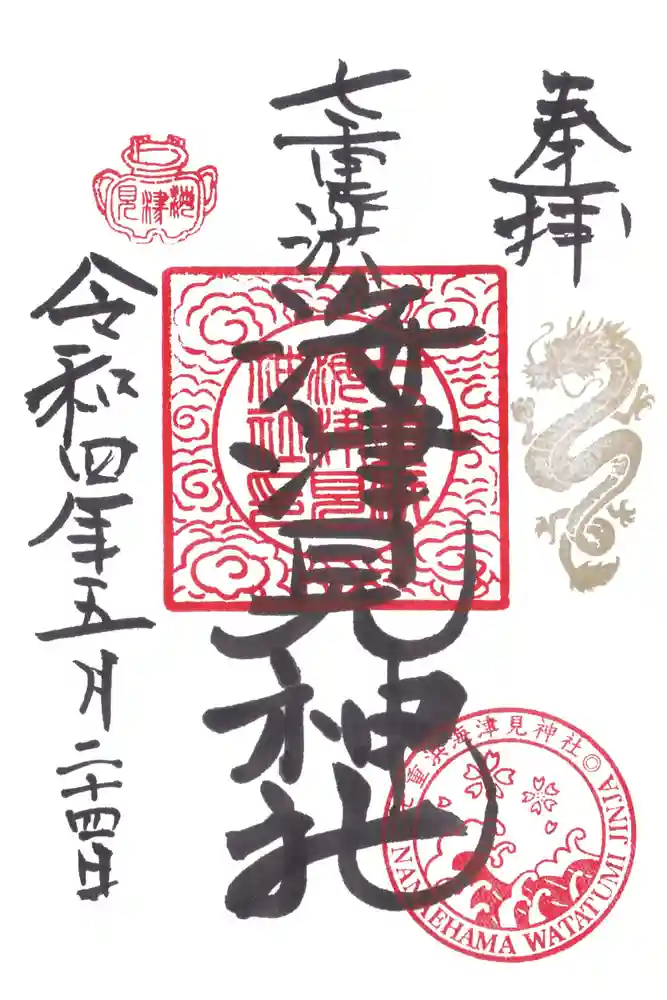 奉拝
七重浜
海津見神社
海津見
令和四年五月二十四日
七重浜海津見神社◎
NANAEHAMA WATATUMI JINJA